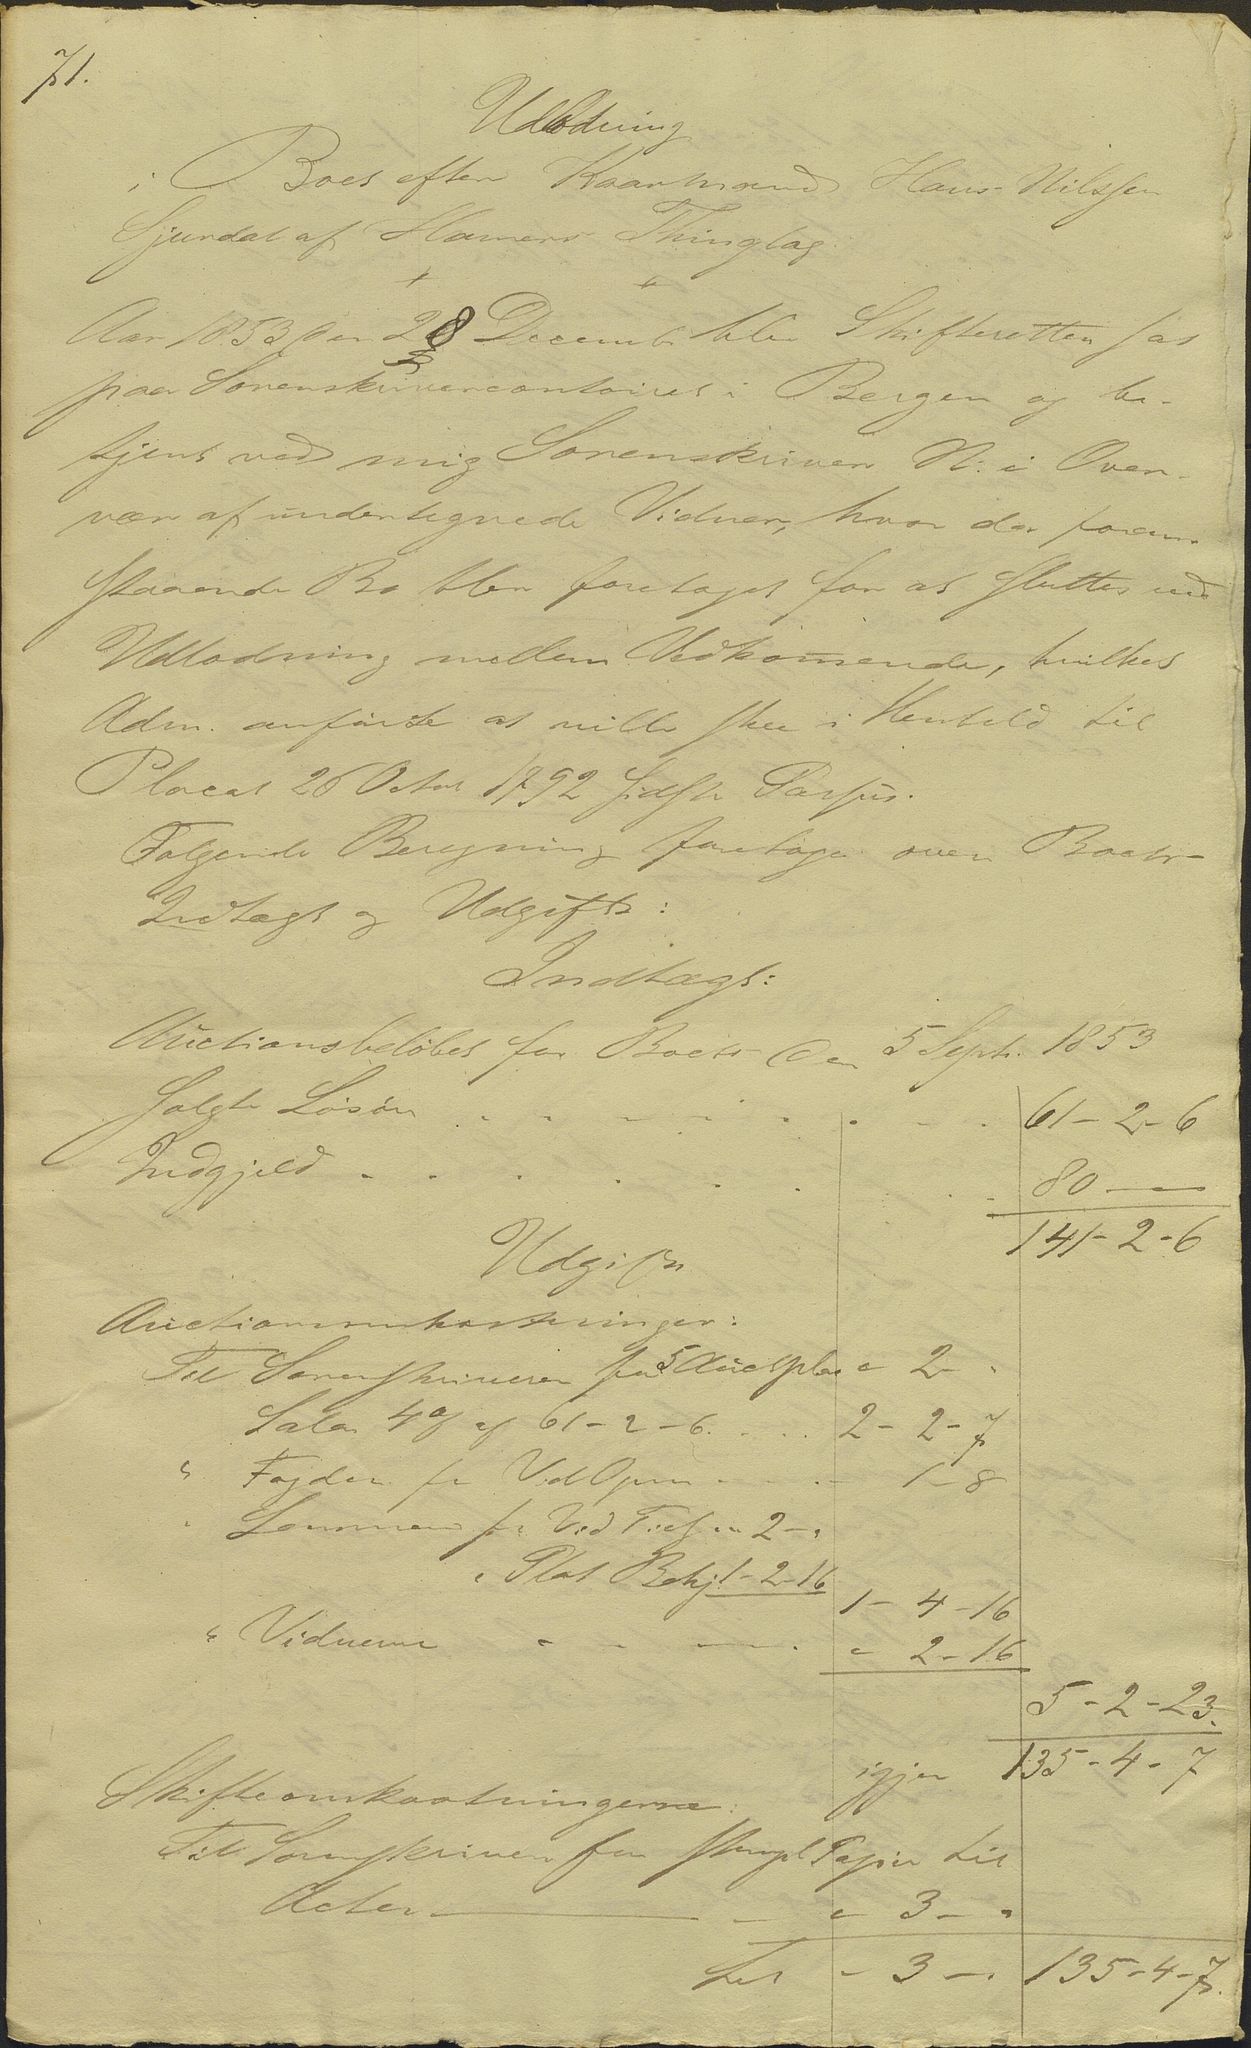 71.
Udlodning
i Boet efter Kaarmand Hans Nilssen
Sjurdal af Hamers Thinglag
Aar 1853 den 28 December blev Skifteretten sat
paa Sorenskrivercontoiret i Bergen og be-
tjent ved mig Sorenskriver N: i Over-
vær af undertegnede Vidner, hvor da foran-
staaende Bo blev foretaget for at sluttes ved
Udlodning mellem Vedkommende, hvilket
Adm. anførte at ville skee i Henhold til
Placat 26 Octbr 1792 sidste Passus.
Følgende Beregning foretoges over Boets
Indtægt og Udgift:
Indtægt:
Auctionsbeløbet for Boets den 5 Septr. 1853
solgte Løsøre 61-2-6
Indgjeld 80 —
141-2-6
Udgift
Auctionsomkostninger:
Til Sorenskriveren for 5 Auctsplac " 2- "
Salar 4% af 61-2-6. 2-2-7
" Fogden for 1-8
" Lensmand for 2- "
" Plac Bekj 1-2-16
1-4-16
" Vidnerne " 2-16
5-2-23.
igjen 135-4-7
Skifteomkostningerne:
Til Sorenskriveren for Stempl Papir til
Acten " 3- "
Lat - 3 - " 135-4-7.